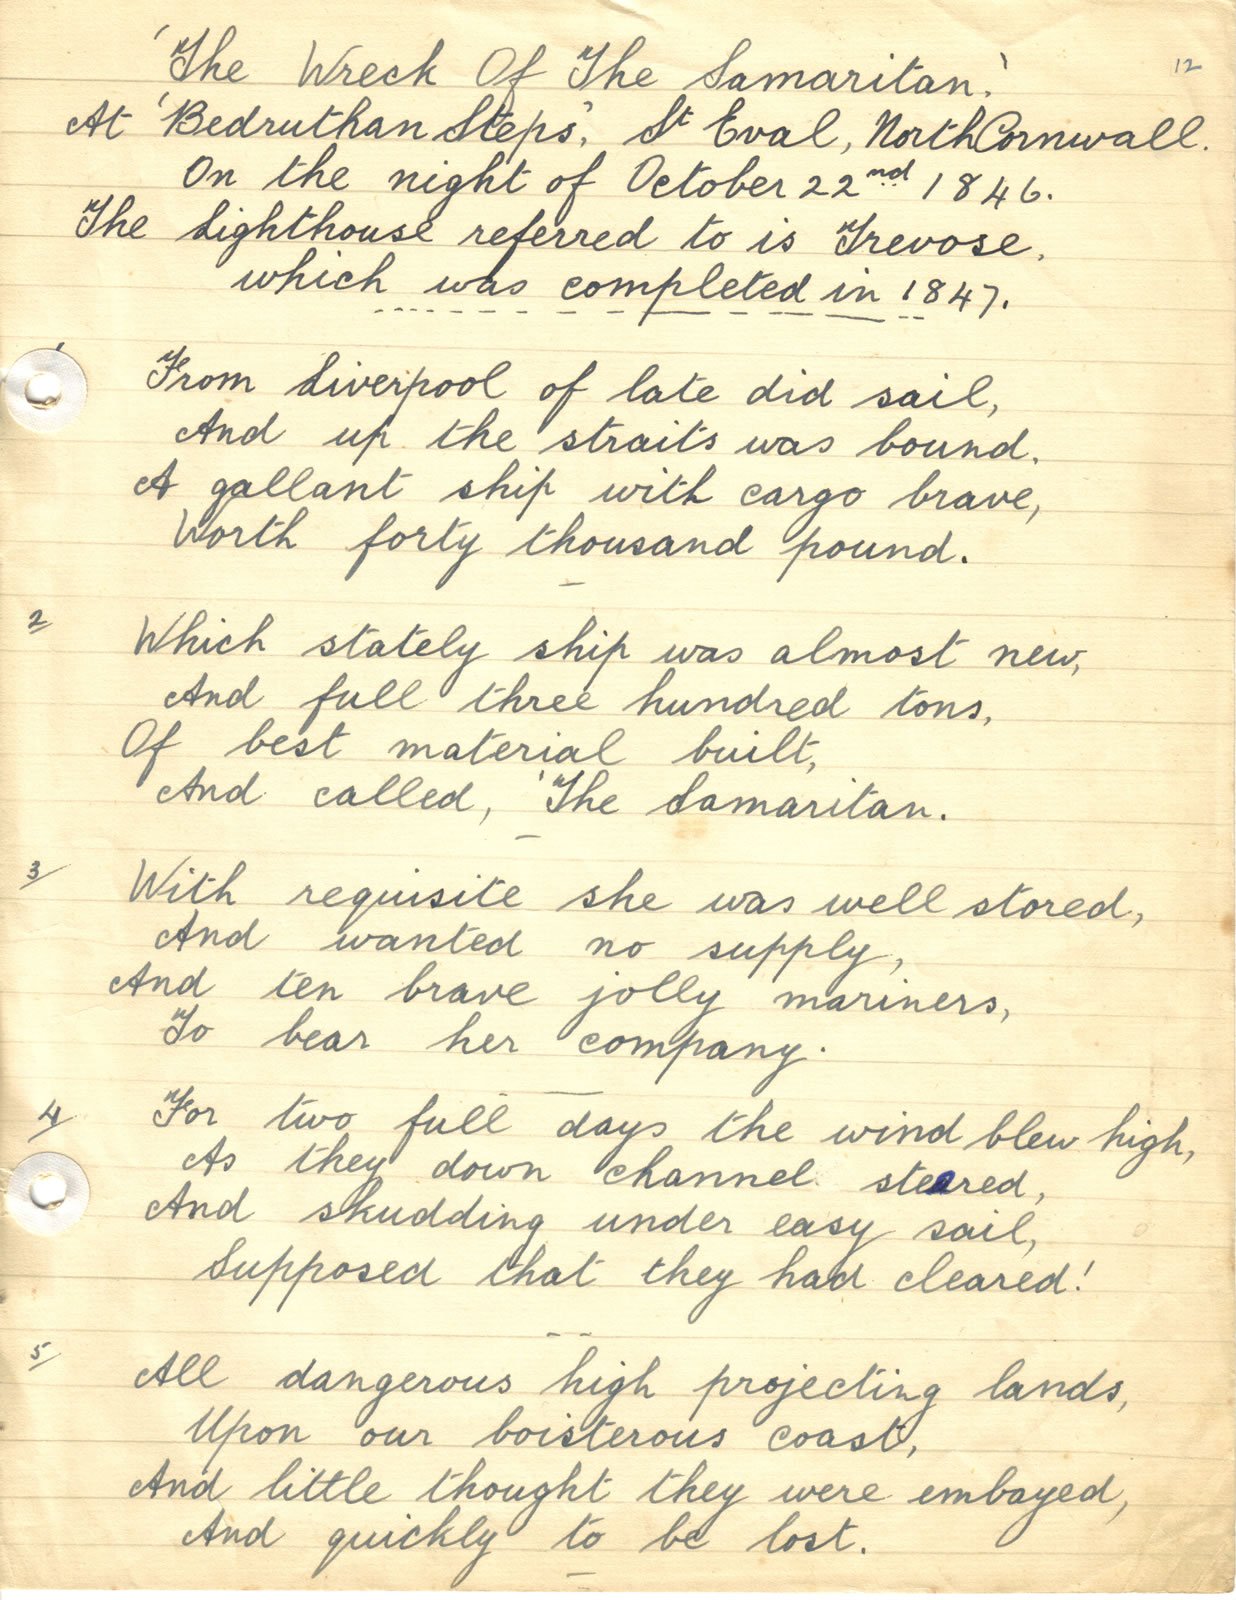 'The Wreck Of The Samaritan.'
12
At 'Bedruthan Steps', St Eval, North Cornwall.
On the night of October 22nd 1846.
The Lighthouse referred to is Trevose,
which was completed in 1847.
1
From Liverpool of late did sail,
And up the straits was bound.
A gallant ship with cargo brave,
Worth forty thousand pound.
2
Which stately ship was almost new,
And full three hundred tons,
Of best material built,
And called, 'The Samaritan.
3
With requisite she was well stored,
And wanted no supply,
And ten brave jolly mariners,
To bear her company.
4
For two full days the wind blew high,
As they down channel steered,
And skudding under easy sail,
Supposed that they had cleared!
5
All dangerous high projecting lands,
Upon our boisterous coast,
And little thought they were embayed,
And quickly to be lost.